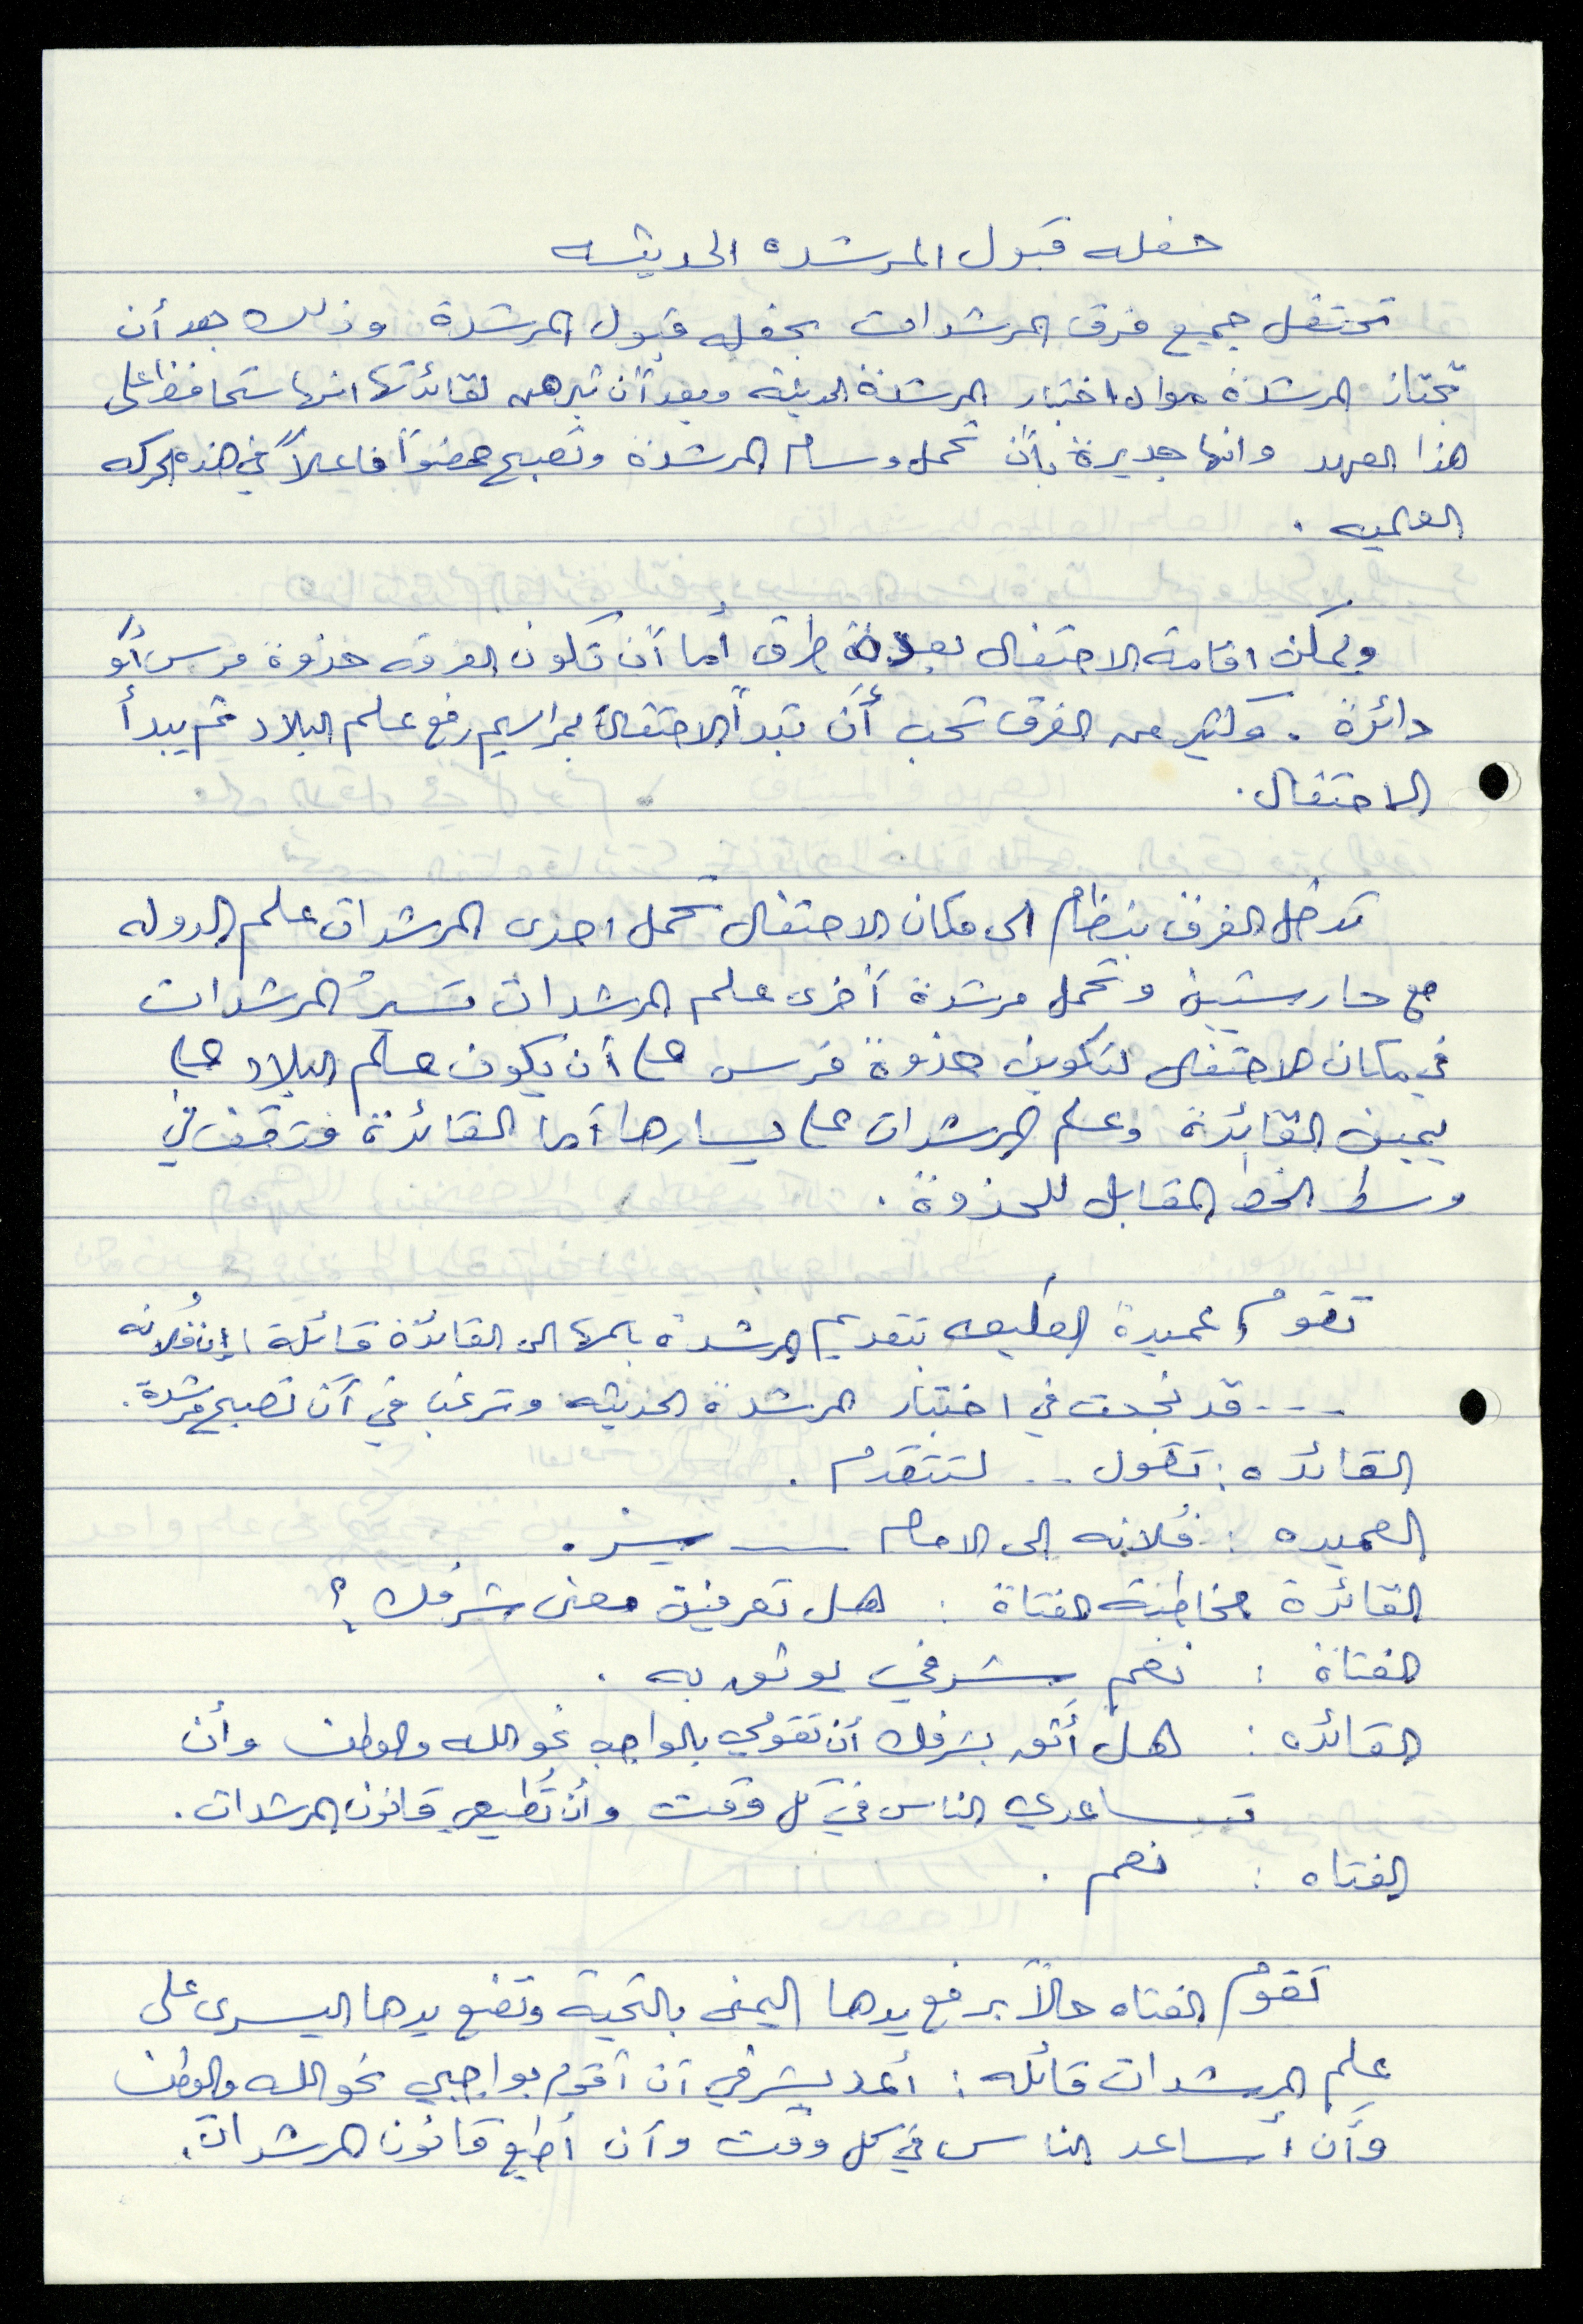 حفله قبول المرشده الحديثه
تحتفل جميع فرق المرشدات بحفله قبول المرشدة وذلك بعد أن
تجتاز المرشدة مواد اختبار المرشدة الحديثة وبعد أن تبرهن لقائدتها انها ستحافظ على
هذا العهد وانها جديرة بأن تحمل وسام المرشدة وتصبح عضواً فاعلاً في هذه الحركه
العالميه .
ويمكن اقامة الاحتفال بعدة طرق أما أن تكون الفرقه حذوة فرس أو
دائرة . وكثير من الفرق تحب أن تبدأ الاحتفال بمراسيم رفع علم البلاد ثم يبدأ
الاحتفال .
تدخل الفرق بنظام الى مكان الاحتفال تحمل احدى المرشدات علم الدوله
مع حارستين وتحمل مرشدة أخرى علم المرشدات تسير المرشدات
في مكان الاحتفال لتكوين حذوة فرس على أن يكون علم البلاد على
يمين القائدة وعلم المرشدات على يسارها أما القائدة فتقف في
وسط الخط المقابل للحذوة .
تقوم عميدة الطليعه بتقديم المرشدة باسمها الى القائدة قائلة : إن فلانه
---- قد نجحت في اختبار المرشدة الحديثه وترغب في أن تصبح مرشدة .
القائده : تقول .. لتتقدم .
العميده : فلانه الى الامام ــــ سر .
القائدة مخاطبة الفتاة : هل تعرفين معنى شرفك ؟
الفتاة : نعم شرفي يوثق به .
القائده : هل أثق بشرفك أن تقومي بالواجب نحو الله والوطن وأن
تساعدي الناس في كل وقت وأن تُطيعي قانون المرشدات .
الفتاه : نعم .
تقوم الفتاه حالاً برفع يدها اليمنى بالتحية وتضع يدها اليسرى على
علم المرشدات قائله : أعد بشرفي أن أقوم بواجبي نحو الله والوطن
وأن أساعد الناس في كل وقت وأن أطيع قانون المرشدات .